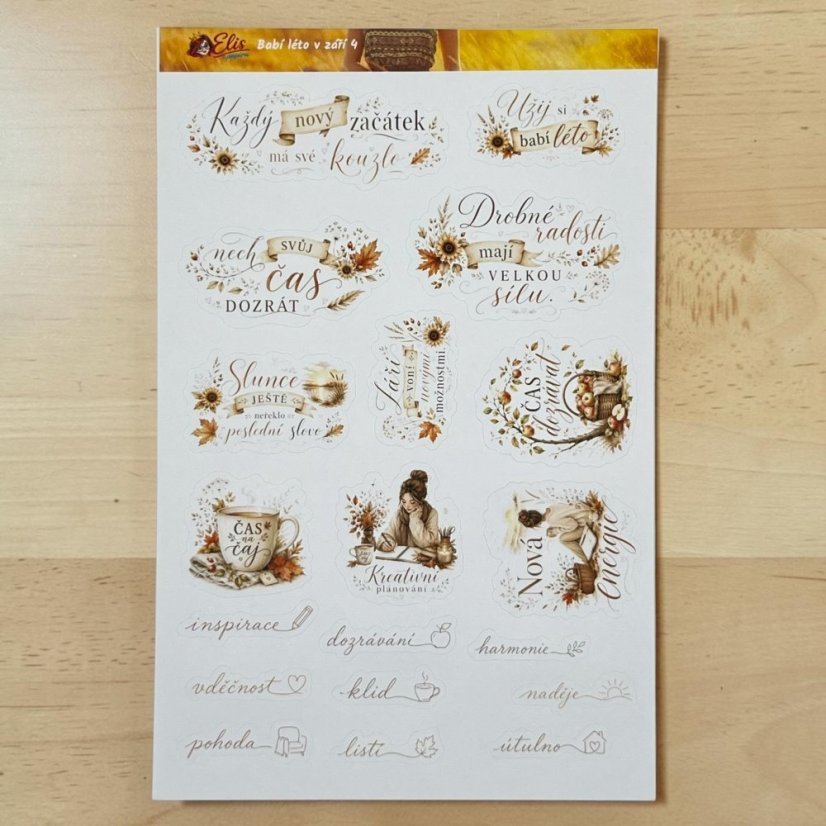 Elis
Babí léto v září 4
Každý nový začátek
má své kouzlo
Užij si
babí léto
nech SVŮJ
čas
DOZRÁT
Drobné
radosti
mají
VELKOU
sílu.
Slunce
JEŠTĚ
neřeklo
poslední slovo
Září
voní
novými
možnostmi
ČAS
dozrávat
ČAS
na
čaj
Kreativní
plánování
Nová
energie
inspirace
dozrávání
harmonie
vděčnost
klid
naděje
pohoda
listí
útulno